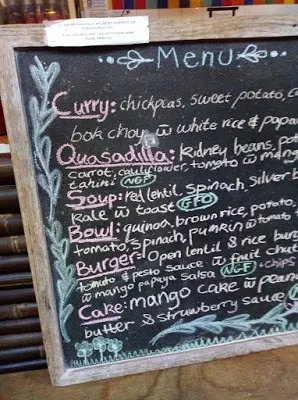 Menu
Curry: chickpeas, sweet potato,
bok choy w white rice & papa
Quasadilla: kidney beans, po
carrot, cauliflower, tomato w mang
tahini NGF
Soup: red lentil, spinach, silver b
Kale w toast GFO
Bowl: quinoa, brown rice, potato,
tomato, spinach, pumkin w tomato
Burger: Open lentil & rice bur
tomato & pesto sauce w fruit chut
w mango papaya salsa NGF + chips
Cake: mango cake w pean
butter & strawberry sauce